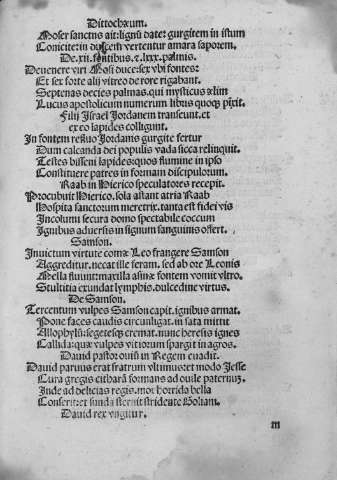 Dittochæum.
Moser sanctus ait: lignū date: gurgitem in istum
Conicite: in dulcem vertentur amara saporem.
De .xii. fontibus. & .lxx. palmis.
Devenere viri Mosi duce: sex vbi fontes:
Et sex forte alij vitreo de rore rigabant.
Septenas decies palmas. qui mysticus elim
Lucus apostolicum numerum libus quoq; pixit.
Filij Israel Jordanem transeunt. et
ex eo lapides colligunt.
In fontem refluo Jordanis gurgite fertur
Dum calcanda dei populis vada sicca relinquit.
Testes bisseni lapides: quos flumine in ipso
Constituere patres in formam discipulorum.
Raab in Hierico speculatores recepit.
Procubuit Hierico. sola astant atria Raab
Hospita sanctorum meretrix. tanta est fidei vis
Incolumi secura domo spectabile coccum
Ignibus aduersis in signum sanguinis offert.
Samson.
Inuictum virtute comæ Leo frangere Samson
Aggreditur. necat ille feram. sed ab ore Leonis
Mella fluunt: maxilla asinæ fontem vomit vltro.
Stultitia exundat lymphis. dulcedine virtus.
De Samson.
Tercentum vulpes Samson capit. ignibus armat.
Pone faces caudis circunligat. in sata mittit
Allophylū: segetesq; cremat. nunc heresis ignes
Callida: quæ vulpes vitiorum spargit in agros.
Dauid pastor ouiū in Regem euadit.
Dauid paruus erat fratrum vltimus: et modo Jesse
Cura gregis citharā formans ad ouile paternū;
Inde ad delicias regis. mox horrida bella
Conserit: et funda sternit stridente Goliam.
Dauid rex vngitur.
m